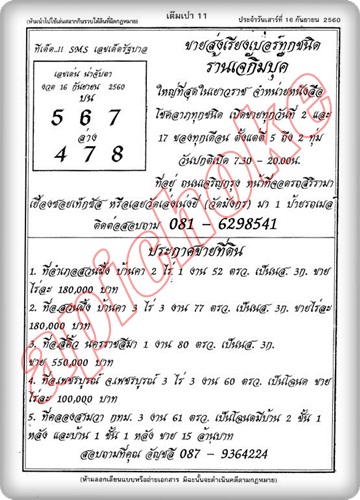 (ห้ามนำไปใช้เล่นสลากกินรวบได้สิ่งที่ผิดกฎหมาย)
เต็มเปา 11
ประจำวันเสาร์ที่ 16 กันยายน 2560
ทีเด็ด..!! SMS เลขเด็ดรัฐบาล
เลขเด่น น่าจับตา
งวด 16 กันยายน 2560
บน
5 6 7
ล่าง
4 7 8
ขายส่งเรียงเบอร์ทุกชนิด
ร้านเจ๊กิมบุ๊ค
ใหญ่ที่สุดในเยาวราช จำหน่ายหนังสือ
โชคลาภทุกชนิด เปิดขายทุกวันที่ 2 และ
17 ของทุกเดือน ตั้งแต่ตี 5 ถึง 2 ทุ่ม
วันปกติเปิด 7.30 - 20.00น.
ที่อยู่ ถนนเจริญกรุง หน้าที่จอดรถสิริรามา
เยื้องซอยเท็กซัส หรือเลยวัดเล่งเน่ยยี่ (วัดมังกร) มา 1 ป้ายรถเมล์
ติดต่อสอบถาม 081 - 6298541
ประกาศขายที่ดิน
1. ที่อำเภอสวนผึ้ง บ้านคา 2 ไร่ 1 งาน 52 ตรว. เป็นนส. 3ก. ขาย
ไร่ละ 180,000 บาท
2. ที่อ.สวนผึ้ง บ้านคา 3 ไร่ 3 งาน 77 ตรว. เป็นนส. 3ก. ขายไร่ละ
180,000 บาท
3. ที่อ.สีคิ้ว นครราชสีมา 1 งาน 80 ตรว. เป็นนส. 3ก.
ขาย 550,000 บาท
4. ที่อ.เพชรบูรณ์ จ.เพชรบูรณ์ 3 ไร่ 3 งาน 60 ตรว. เป็นโฉนด ขาย
ไร่ละ 100,000 บาท
5. ที่คลองสามวา กทม. 3 งาน 61 ตรว. เป็นโฉนดมีบ้าน 2 ชั้น 1
หลัง และบ้าน 1 ชั้น 1 หลัง ขาย 15 ล้านบาท
สอบถามที่คุณ อัญชลี 087 - 9364224
(ห้ามลอกเลียนแบบหรือถ่ายเอกสาร มิฉะนั้นจะดำเนินคดีตามกฎหมาย)
apichoke